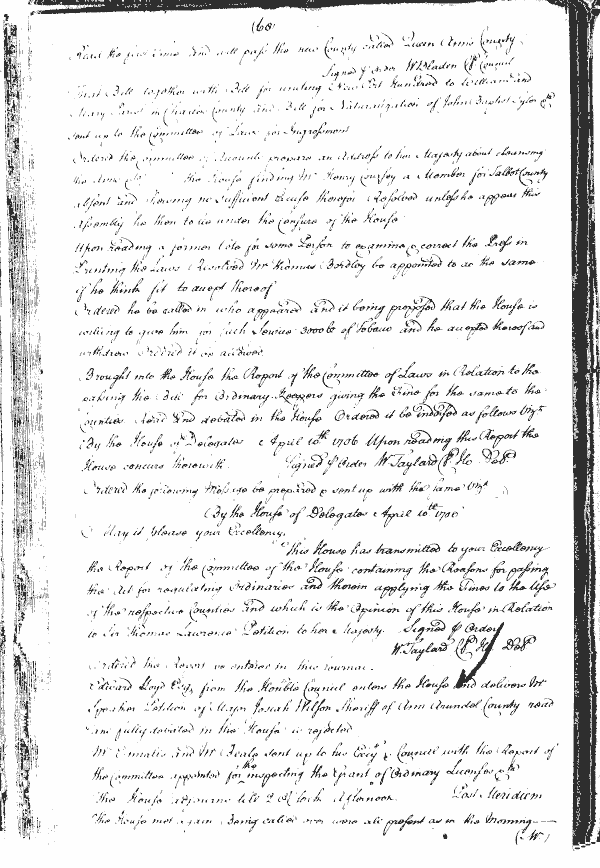 (68)
Read the first time and will pass the new County called Queen Anns County
Signed p Order W Bladen Cl Council
That Bill together with Bill for uniting New Port Hundred to William and
Mary Parish in Charles County and Bill for Naturalization of John Baptist Tyler &c
sent up to the Committee of Laws for Ingrossment
Ordered the Committee of Accounts prepare an Address to her Majesty about cleansing
the Arms &c The House finding Mr Henry Coursey a Member for Talbot County
absent and shewing no sufficient Excuse therefor Resolved unless he appears this
Assembly he then to lie under the censure of the House
Upon Reading a former Vote for some Person to examine & correct the Press in
Printing the Laws Resolved Mr Thomas Bordley be appointed to do the same
if he think fit to accept thereof
Ordered he be called in who appeared and it being proposed that the House is
willing to give him for such Service 3000lb of Tobacco and he accepted thereof and
withdrew Ordered it be allowed
Brought into the House the Report of the Committee of Laws in Relation to the
passing the Bill for Ordinary Keepers giving the Fine for the same to the
Counties Read and debated in the House Ordered it be indorsed as follows Vizt
By the House of Delegates April 10th 1706 Upon reading this Report the
House concurs therewith. Signed p Order W Taylard Cl Ho Del
Ordered the following Message be prepared & sent up with the same Vizt
By the House of Delegates April 10th 1706
May it please your Excellency,
This House has transmitted to your Excellency
the Report of the Committee of the House containing the Reasons for passing
the Act for regulating Ordinaries and therein applying the Fines to the Use
of the respective Counties and which is the Opinion of this House in Relation
to Sir Thomas Lawrence Petition to her Majesty. Signed p Order
W Taylard Cl Ho Del
Ordered the Report be entered in this Journal.
Edward Lloyd Esqr from the Honble Council enters the House and delivers Mr
Speaker Petition of Major Josiah Wilson Sheriff of Ann Arundel County read
and fully debated in the House is rejected
Mr Ennalls and Mr Beale sent up to his Excy & Council with the Report of
the Committee appointed for the inspecting the Grant of Ordinary Licenses &c
The House adjourns till 2 o'Clock Afternoon. Post Meridiem
The House met again Being called over were all present as in the Morning
(Mr)